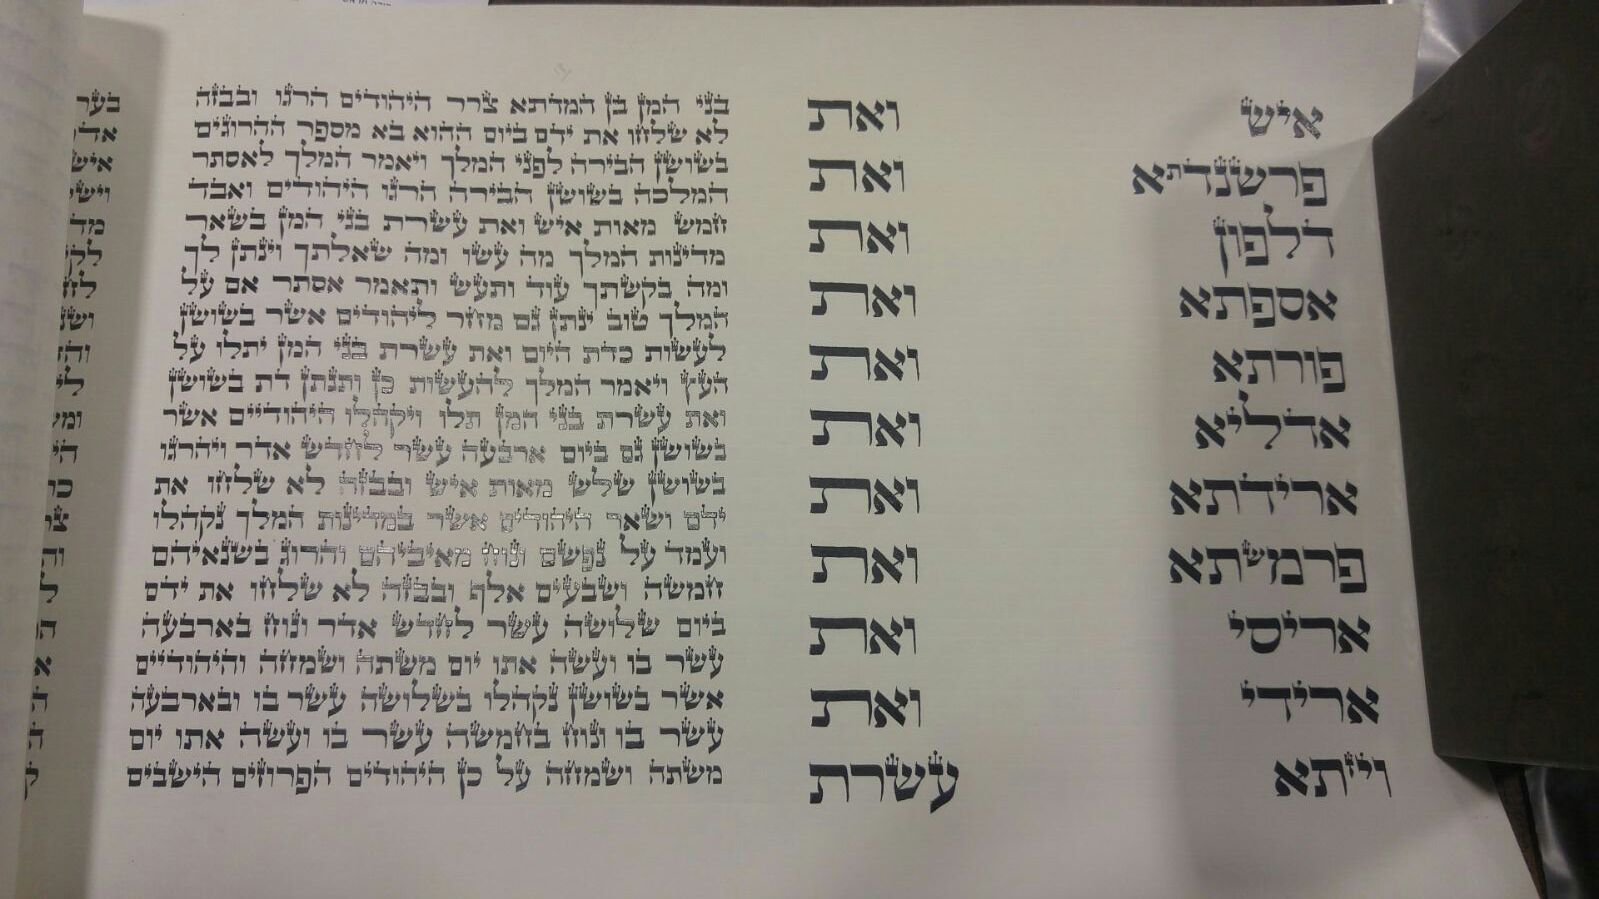 איש ואת
פרשנדתא ואת
דלפון ואת
אספתא ואת
פורתא ואת
אדליא ואת
ארידתא ואת
פרמשתא ואת
אריסי ואת
ארידי ואת
ויזתא עשרת
בני המן בן המדתא צרר היהודים הרגו ובבזה
לא שלחו את ידם ביום ההוא בא מספר ההרוגים
בשושן הבירה לפני המלך ויאמר המלך לאסתר
המלכה בשושן הבירה הרגו היהודים ואבד
חמש מאות איש ואת עשרת בני המן בשאר
מדינות המלך מה עשו ומה שאלתך וינתן לך
ומה בקשתך עוד ותעש ותאמר אסתר אם על
המלך טוב ינתן גם מחר ליהודים אשר בשושן
לעשות כדת היום ואת עשרת בני המן יתלו על
העץ ויאמר המלך להעשות כן ותנתן דת בשושן
ואת עשרת בני המן תלו ויקהלו היהודיים אשר
בשושן גם ביום ארבעה עשר לחדש אדר ויהרגו
בשושן שלש מאות איש ובבזה לא שלחו את
ידם ושאר היהודים אשר במדינות המלך נקהלו
ועמד על נפשם ונוח מאיביהם והרוג בשנאיהם
חמשה ושבעים אלף ובבזה לא שלחו את ידם
ביום שלושה עשר לחדש אדר ונוח בארבעה
עשר בו ועשה אתו יום משתה ושמחה והיהודיים
אשר בשושן נקהלו בשלושה עשר בו ובארבעה
עשר בו ונוח בחמשה עשר בו ועשה אתו יום
משתה ושמחה על כן היהודים הפרוזים הישבים